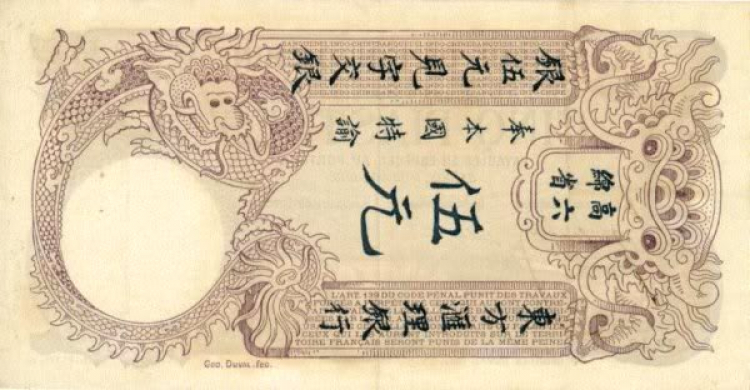 六省
高綿
東方滙理銀行
伍元
奉本國特諭
銀伍元見字交銀
L'ART. 139 DU CODE PENAL PUNIT DES TRAVAUX
TOIRE FRANÇAIS SERONT PUNIS DE LA MÊME PEINE
Geo. Duval. fec.